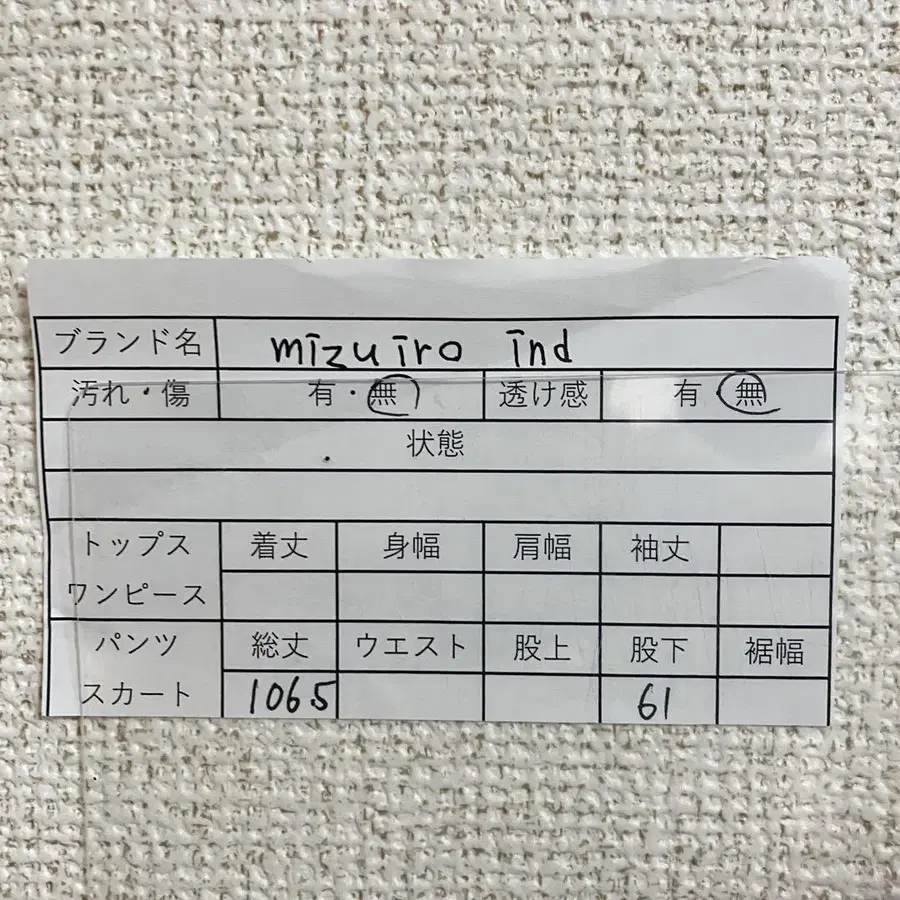 ブランド名 mizuiro ind
汚れ・傷 有・無 透け感 有・無
状態
トップス 着丈 身幅 肩幅 袖丈
ワンピース
パンツ 総丈 ウエスト 股上 股下 裾幅
スカート 1065 61